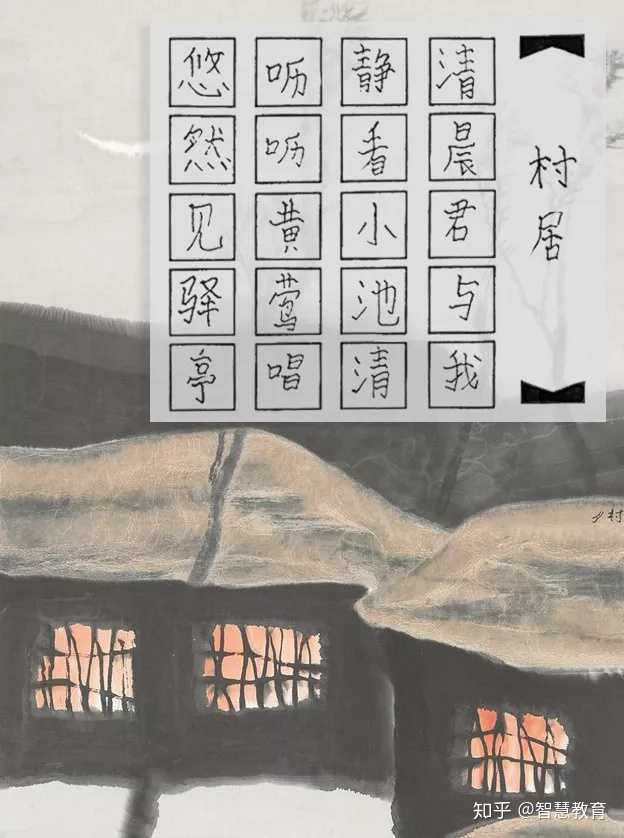 村居
清晨君与我
静看小池清
呖呖黄莺唱
悠然见驿亭
乡村
知乎 @智慧教育